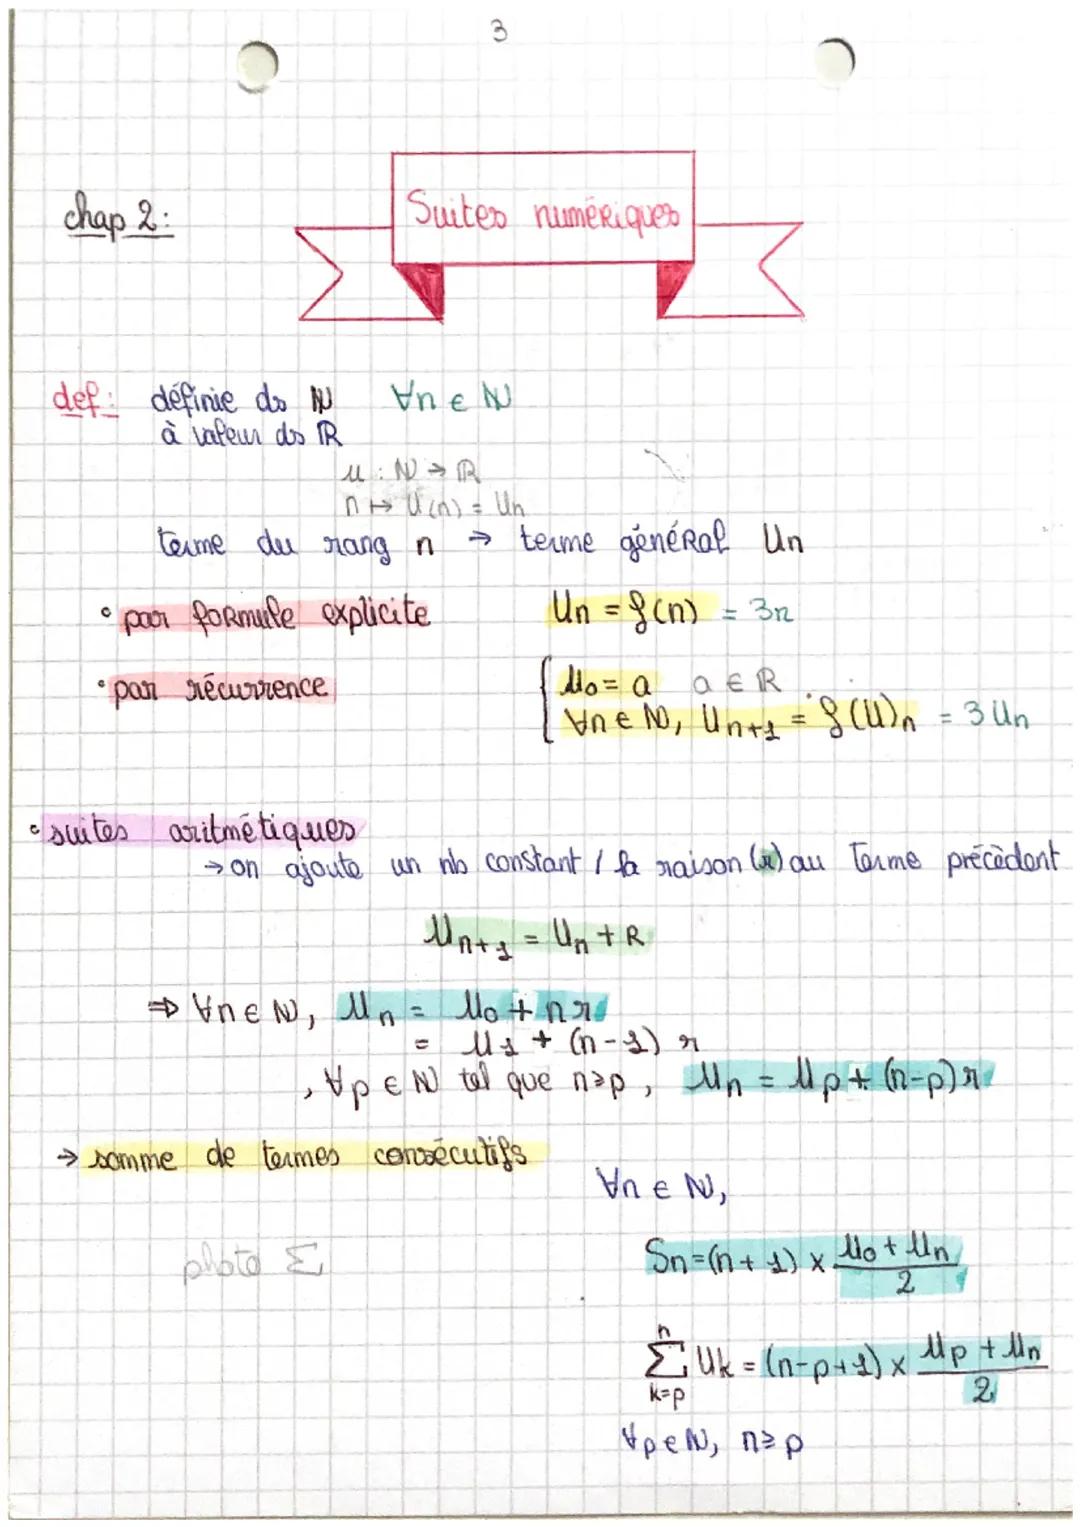 3
chap 2:
Suites numériques
def: définie ds ℕ ∀n ∈ ℕ
à valeur ds ℝ
u : ℕ → ℝ
n ↦ U(n) = Un
terme du rang n → terme général Un
• par formule explicite Un = f(n) = 3n
• par récurrence
{ U₀ = a a ∈ ℝ
∀n ∈ ℕ, Uₙ₊₁ = f(U)ₙ = 3 Un
• suites aritmétiques
→ on ajoute un nb constant / la raison (r) au terme précèdent
Uₙ₊₁ = Uₙ + R
⇒ ∀n ∈ ℕ, Uₙ = U₀ + nr
= U₁ + (n-1) r
, ∀p ∈ ℕ tel que n≥p, Un = Up + (n-p) r
→ somme de termes consécutifs
∀n ∈ ℕ,
photo Σ
Sn = (n + 1) × (U₀ + Un)/2
n
Σ Uk = (n-p+1) × (Up + Un)/2
k=p
∀p ∈ ℕ, n ≥ p